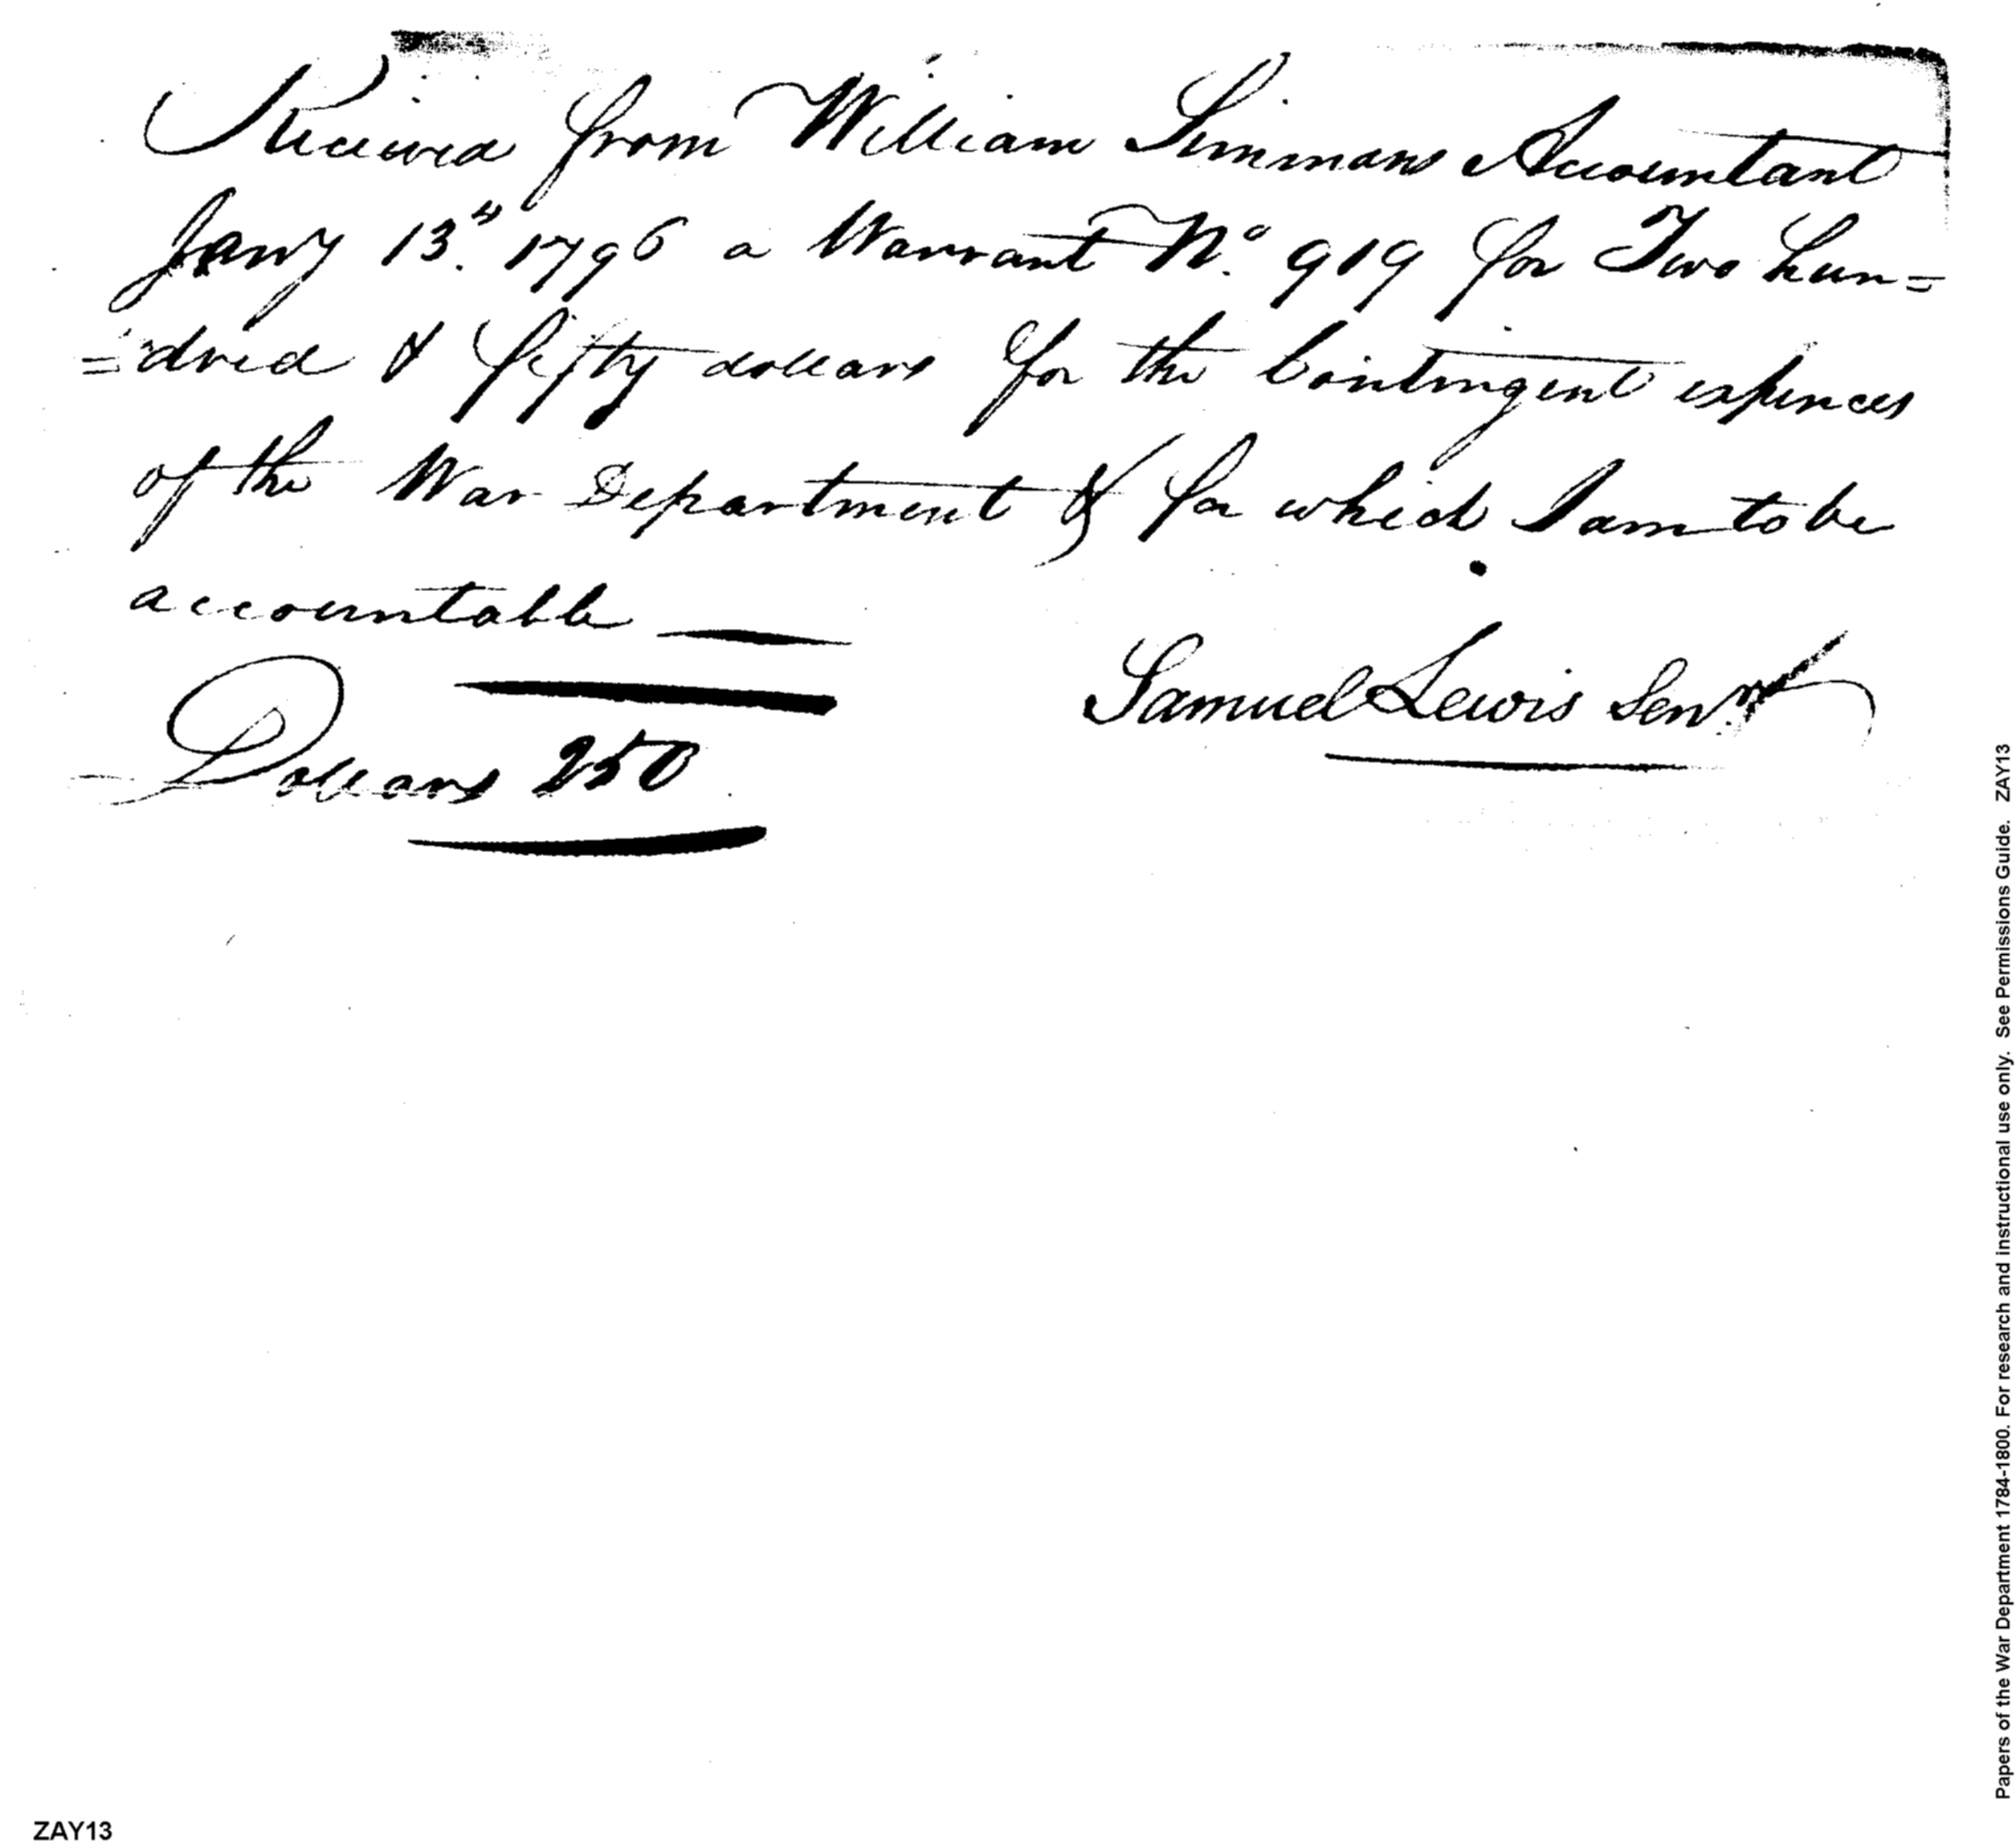 Received from William Simmons Accountant
Jany 13th 1796 a Warrant No. 919 for Two hun=
=dred & fifty dollars for the Contingent expences
of the War Department & for which I am to be
accountable
Samuel Lewis Senr
Dollars 250
Papers of the War Department 1784-1800. For research and instructional use only. See Permissions Guide. ZAY13
ZAY13